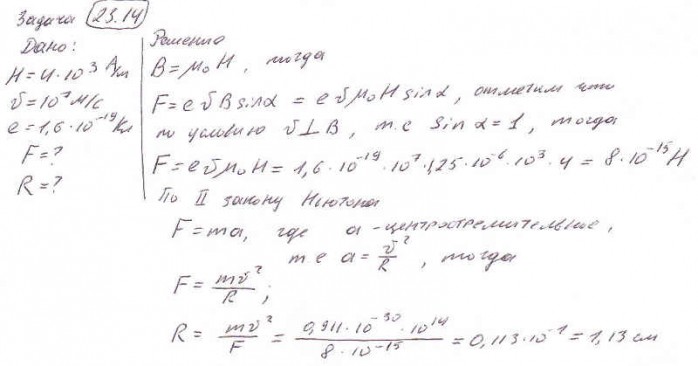 Задача 23.14
Дано:
H = 4·10³ А/м
v = 10⁷ м/с
e = 1,6·10⁻¹⁹ Кл
F = ?
R = ?
Решение
B = μ₀H, тогда
F = e v B sin α = e v μ₀ H sin α, отметим что
по условию v ⊥ B, т.е sin α = 1, тогда
F = e v μ₀ H = 1,6·10⁻¹⁹·10⁷·1,25·10⁻⁶·10³·4 = 8·10⁻¹⁵ Н
По II закону Ньютона
F = ma, где a - центростремительное,
т е a = v²/R, тогда
F = mv²/R;
R = mv²/F = 0,911·10⁻³⁰·10¹⁴/8·10⁻¹⁵ = 0,113·10⁻¹ = 1,13 см